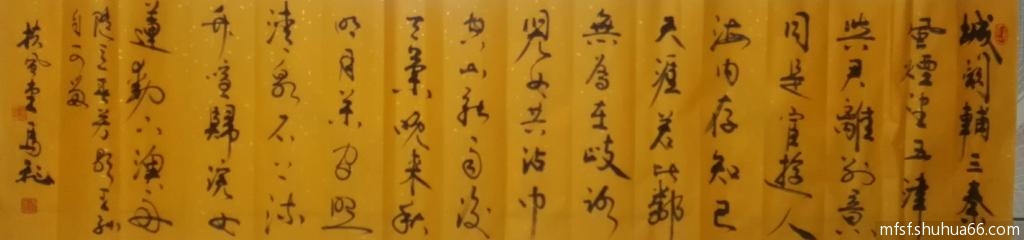 城阙辅三秦
风烟望五津
与君離别意
同是宦遊人
海内存知己
天涯若比鄰
無為在歧路
児女共沾巾
空山新雨後
天氣晚来秋
明月松间照
清泉石上流
竹喧歸浣女
蓮動下漁舟
随意春芳歇王孫
自可留
扶風堂馬
mfsf.shuhua66.com